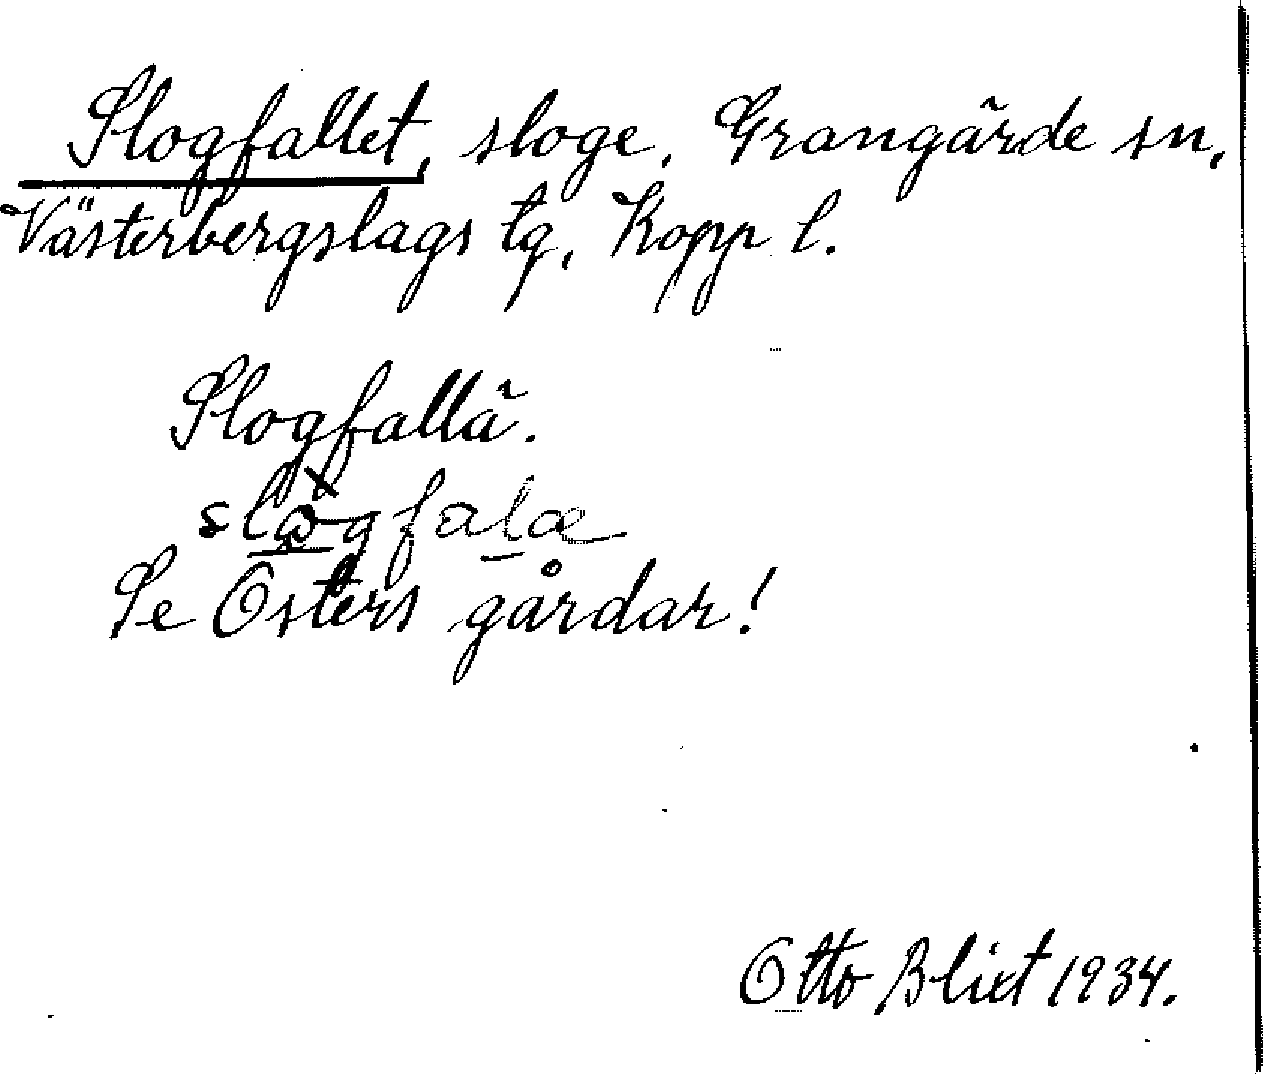 Slogfallet, sloge, Grangärde sn,
Västerbergslags tg, Kopp l.
Slogfallä.
Se Osters gårdar!
Otto Blixt 1934.